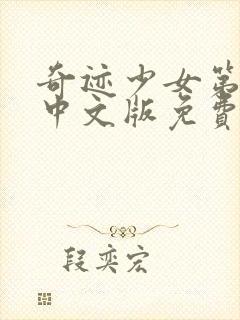 奇迹少女第
中文版免费
段奕宏